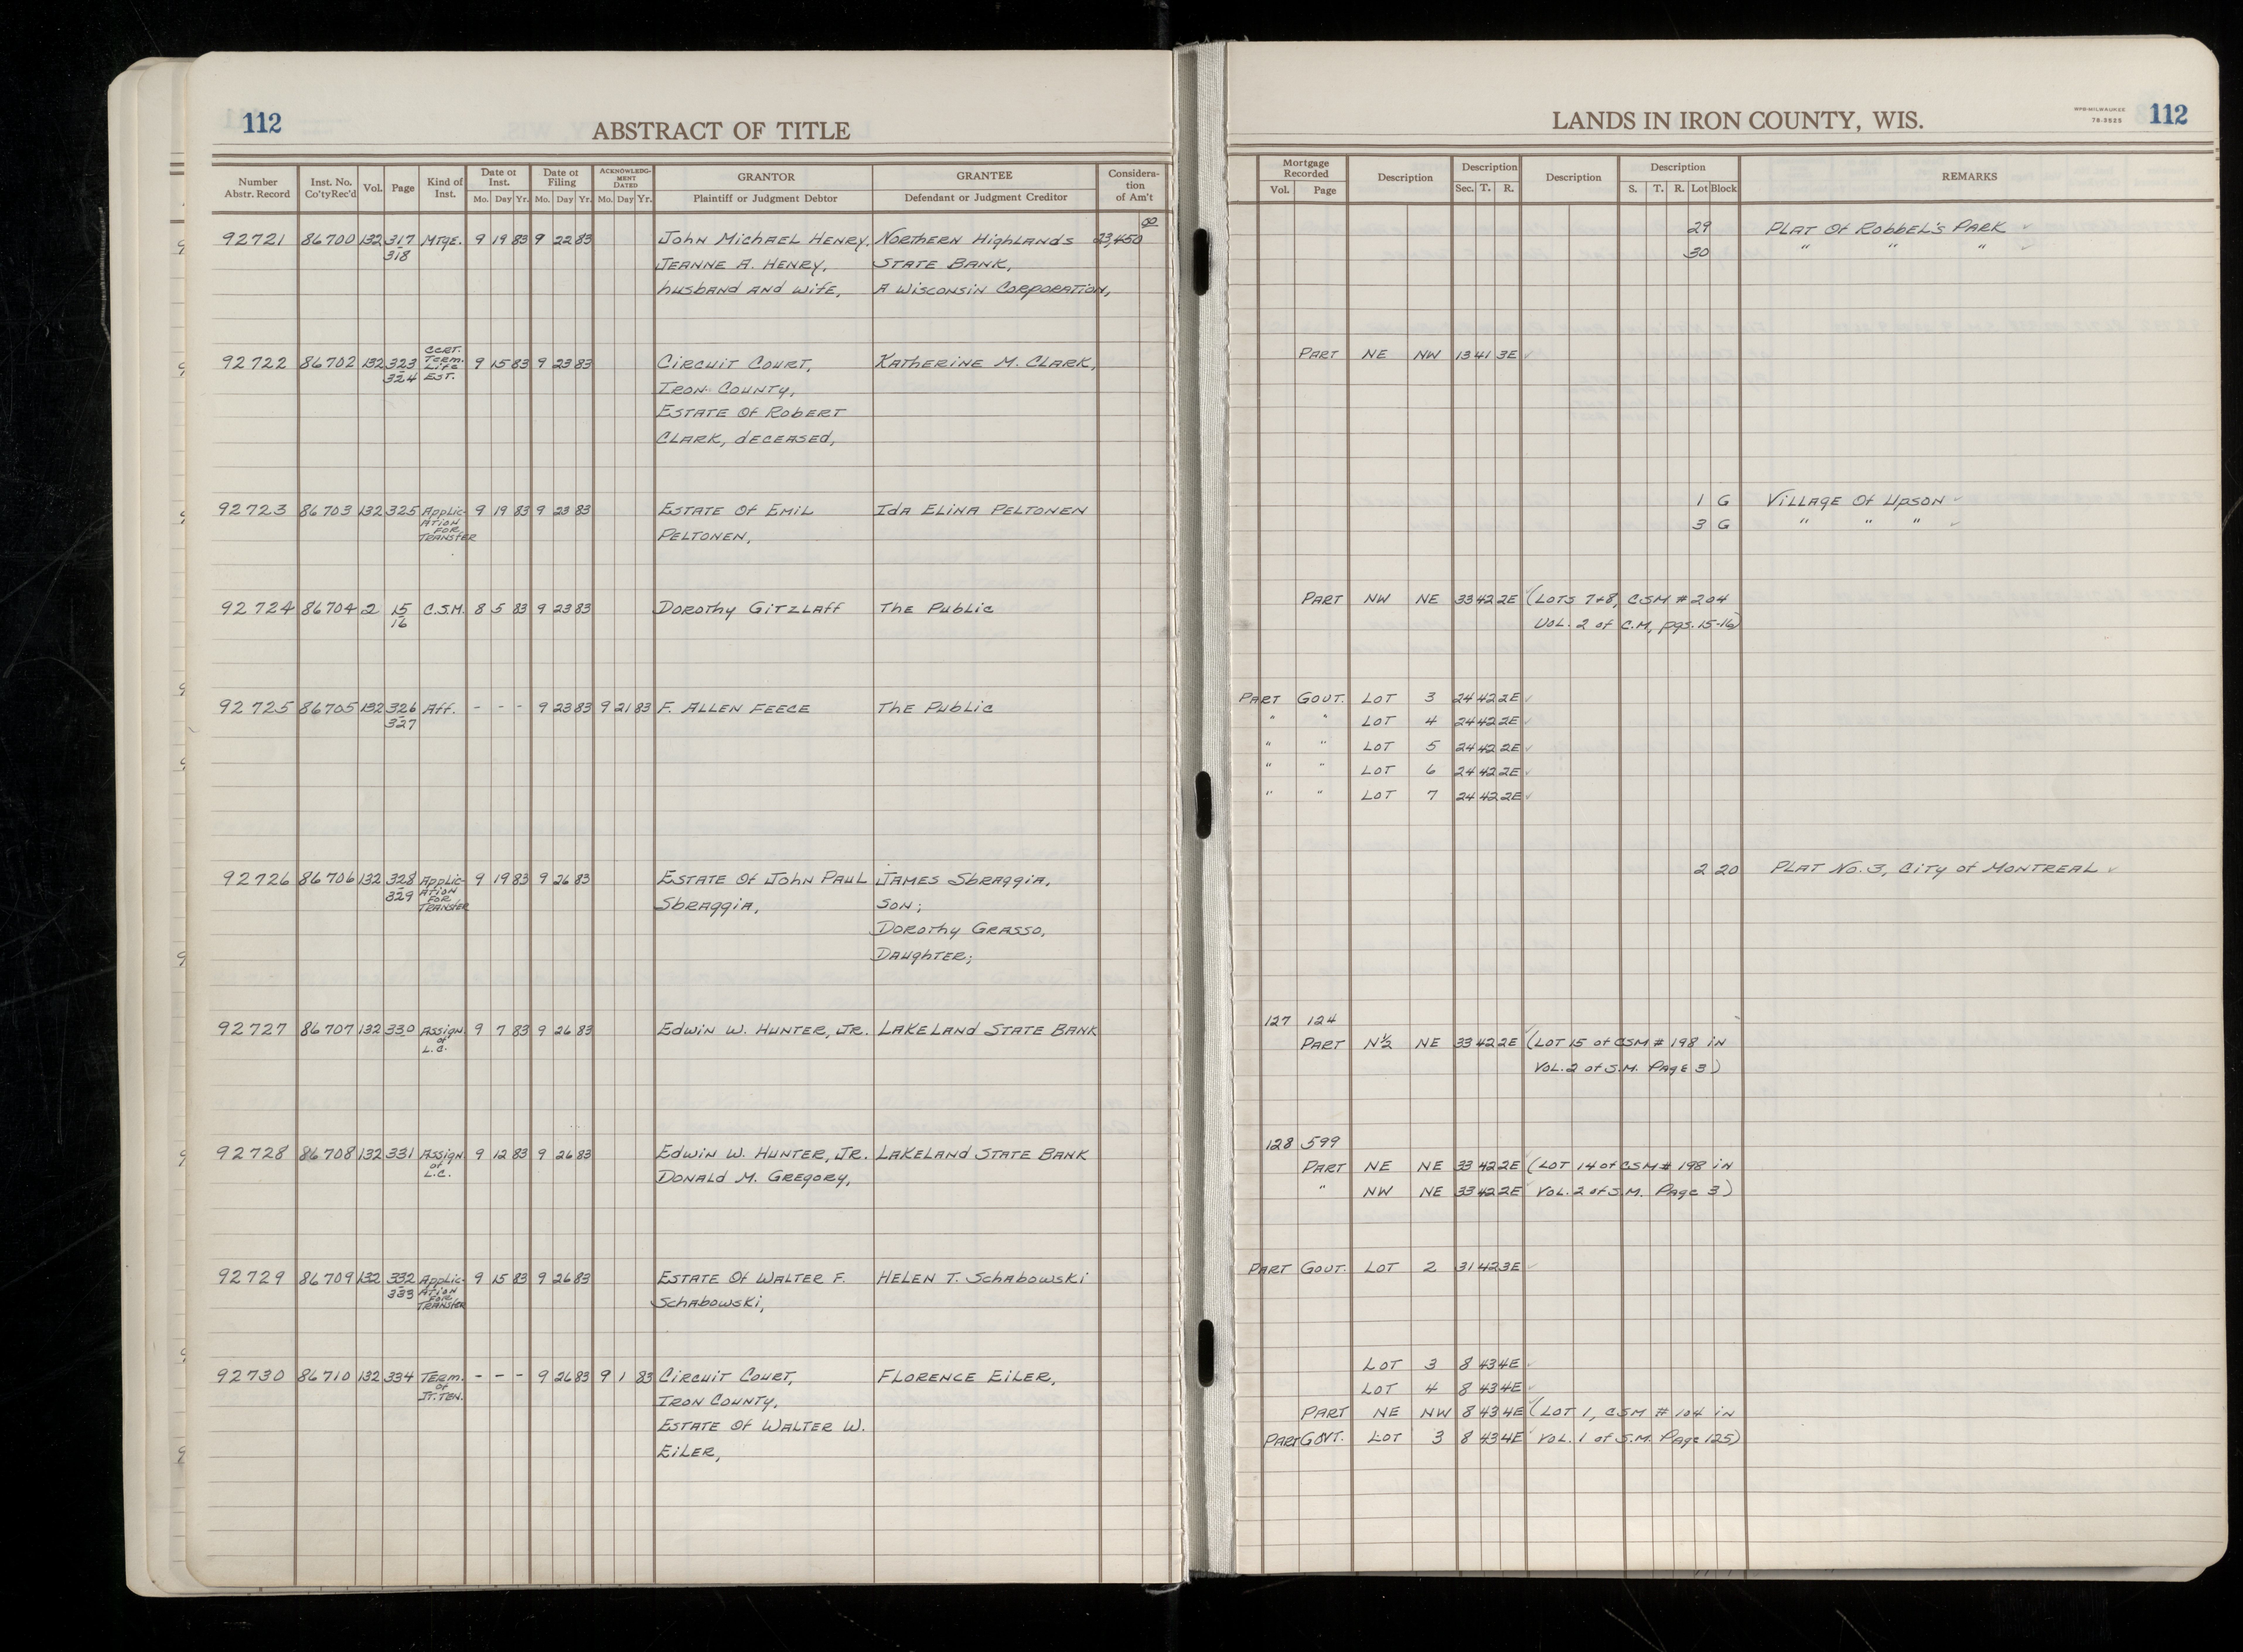 112
ABSTRACT OF TITLE
Number Abstr. Record | Inst. No. Co'ty Rec'd | Vol. | Page | Kind of Inst. | Date of Inst. Mo. Day Yr. | Date of Filing Mo. Day Yr. | ACKNOWLEDG-MENT DATED Mo. Day Yr. | GRANTOR Plaintiff or Judgment Debtor | GRANTEE Defendant or Judgment Creditor | Considera-tion of Am't
92721 86700 132 317 Mtge. 9 19 83 9 22 83 John Michael Henry, Northern Highlands 23,450 00
318 Jeanne A. Henry, State Bank,
husband and wife, A Wisconsin Corporation,
Cert.
92722 86702 132 323 Term. 9 15 83 9 23 83 Circuit Court, Katherine M. Clark,
Life
324 Est.
Iron County,
Estate of Robert
Clark, deceased,
92723 86703 132 325 Applic- 9 19 83 9 23 83 Estate of Emil Ida Elina Peltonen
ation
for
Transfer Peltonen,
92724 86704 2 15 C.S.M. 8 5 83 9 23 83 Dorothy Gitzlaff The Public
16
92725 86705 132 326 Aff. - - - 9 23 83 9 21 83 F. Allen Feece The Public
327
92726 86706 132 328 Applic- 9 19 83 9 26 83 Estate of John Paul James Sbraggia,
329 ation
for
Transfer Sbraggia, Son;
Dorothy Grasso,
Daughter;
92727 86707 132 330 Assign. 9 7 83 9 26 83 Edwin W. Hunter, Jr. Lakeland State Bank
of
L.C.
92728 86708 132 331 Assign. 9 12 83 9 26 83 Edwin W. Hunter, Jr. Lakeland State Bank
of
L.C. Donald M. Gregory,
92729 86709 132 332 Applic- 9 15 83 9 26 83 Estate of Walter F. Helen T. Schabowski
333 ation
for
Transfer Schabowski,
92730 86710 132 334 Term. - - - 9 26 83 9 1 83 Circuit Court, Florence Eiler,
of
Jt. Ten. Iron County,
Estate of Walter W.
Eiler,
LANDS IN IRON COUNTY, WIS.
WPB-MILWAUKEE
78-3525
112
Mortgage Recorded Vol. Page | Description | Description Sec. T. R. | Description | Description S. T. R. Lot Block | REMARKS
29 Plat of Robbel's Park ✓
30 " " " ✓
Part NE NW 13 41 3E ✓
1 G Village of Upson ✓
3 G " " " ✓
Part NW NE 33 42 2E (Lots 7+8, CSM # 204
Vol. 2 of C.M, pgs. 15-16)
Part Govt. Lot 3 24 42 2E ✓
" " Lot 4 24 42 2E ✓
" " Lot 5 24 42 2E ✓
" " Lot 6 24 42 2E ✓
" " Lot 7 24 42 2E ✓
2 20 Plat No. 3, City of Montreal ✓
127 124
Part N½ NE 33 42 2E (Lot 15 of CSM # 198 in
Vol. 2 of S.M. Page 3)
128 599
Part NE NE 33 42 2E (Lot 14 of CSM # 198 in
" NW NE 33 42 2E Vol. 2 of S.M. Page 3)
Part Govt. Lot 2 31 42 3E ✓
Lot 3 8 43 4E ✓
Lot 4 8 43 4E ✓
Part NE NW 8 43 4E (Lot 1, CSM # 104 in
Part Govt. Lot 3 8 43 4E Vol. 1 of S.M. Page 125)